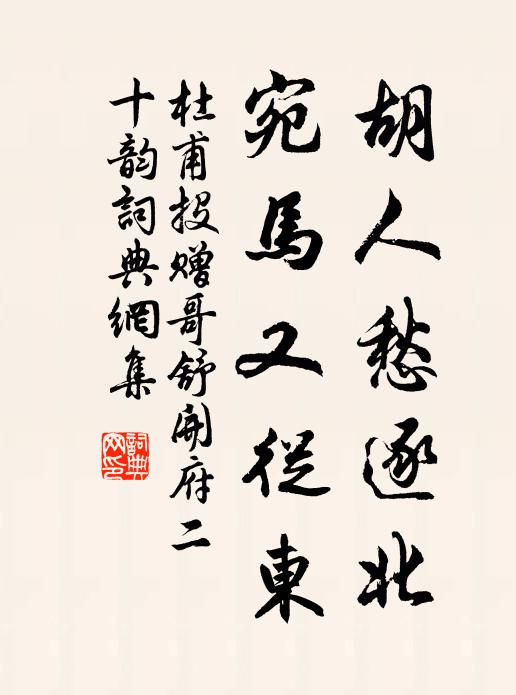 胡人愁逐北
宛馬又從東
杜甫投贈哥舒開府二
十韵詞典網集
詞典
网印